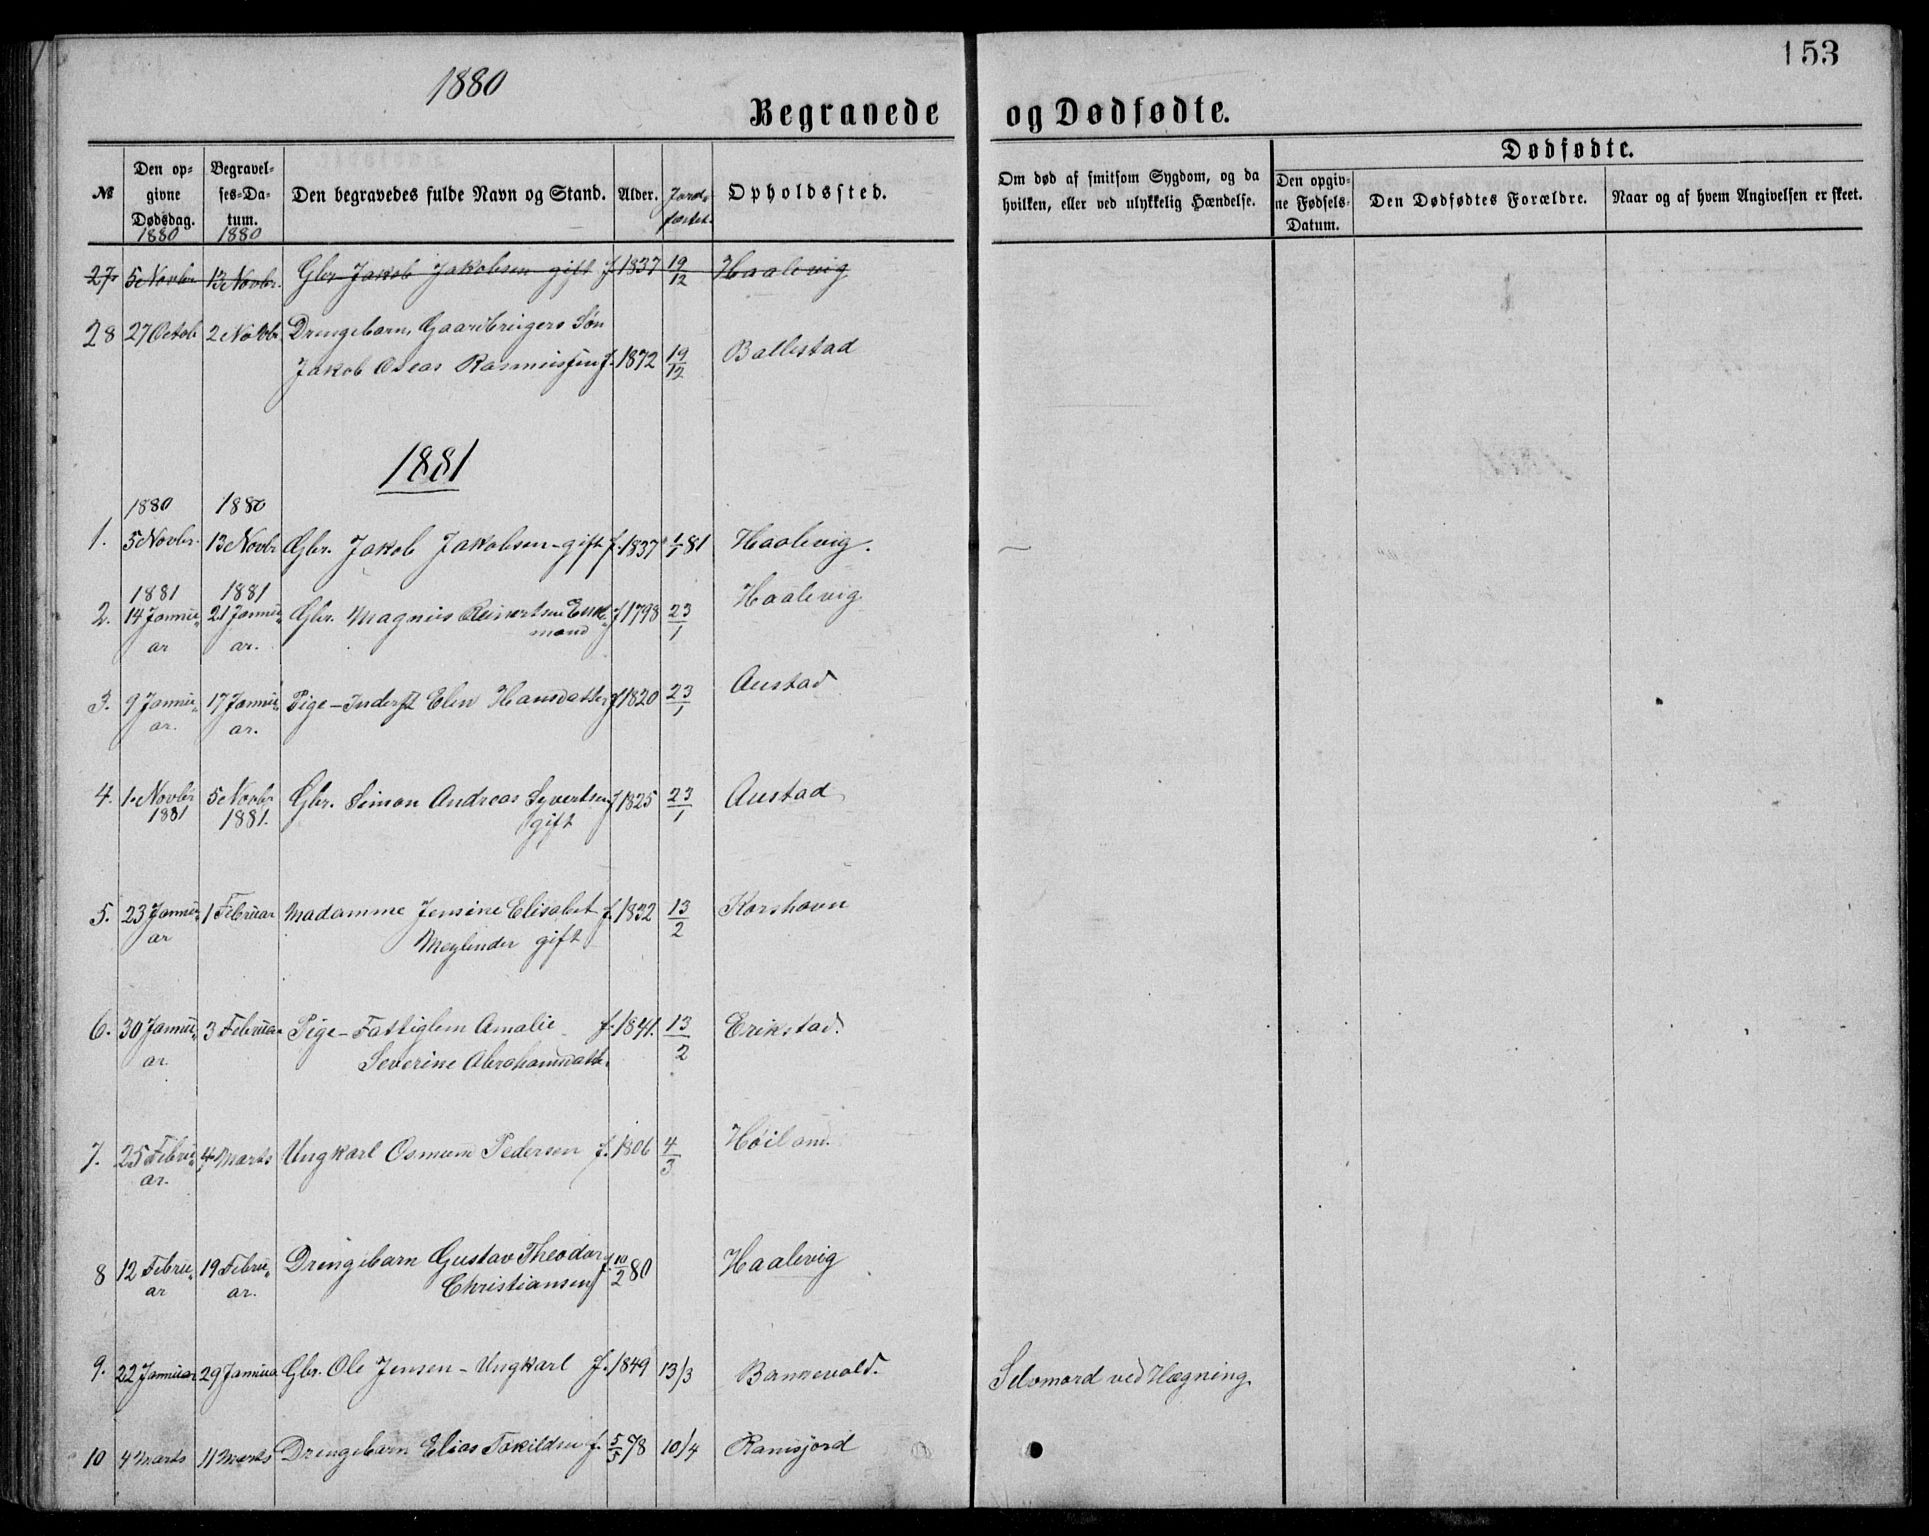 153
1880
Begravede og Dødfødte.
Dødfødte.
№ Den opgivne Dødsdag. Begravelses-Datum. Den begravedes fulde Navn og Stand. Alder. Jordfæstet Opholdssted. Om død af smitsom Sygdom, og da hvilken, eller ved ulykkelig Hændelse. Den opgivne Fødsels-Datum. Den Dødfødtes Forældre. Naar og af hvem Angivelsen er skeet.
1880 1880
27 5 Novbr. 13 Novbr. Gbr Jakob Jakobsen gift f 1837 19/12 Haalevig
28 27 Octob 2 Novbr. Drengebarn, Gaardbrugers Søn
Jakob Oseas Rasmussen f. 1872 19/12 Ballestad
1881
1880 1880
1. 5 Novbr. 13 Novbr Gbr. Jakob Jakobsen - gift f. 1837 1/1 81 Haalevig. —
1881 1881
2. 14 Januu„ 21 Januu„ Gbr. Magnus Reinertsen Enke„ f 1798 23/1 Haalevig
ar ar. mand
3. 9 Januu„ 17 Januu„ Pige - Inderst Elen Hansdatter f 1820 23/1 Austad
ar. ar.
4. 1 Novbr 5 Novbr Gbr. Simon Andreas Syvertsen f 1825 23/1 Austad
1881 1881. gift
5. 23 Januu„ 1 Februar Madamme Jensine Elisabet f. 1832 13/2 Korshavn
ar Meylender gift
6. 30 Januu„ 3 Februar Pige - Fattiglem Amalie f. 1841. 13/2 Erikstad.
ar Severine Abrahamsdatter
7. 25 Febru„ 4 Marts Ungkarl Osmund Pedersen f. 1806 4/3 Høiland.
ar.
8 12 Febru„ 19 Febru„ Drengebarn Gustav Theodor f. 10/2 80 Haalevig
ar ar. Christiansen
9. 22 Januar 29 Januar Gbr. Ole Jensen - Ungkarl f. 1849 13/3 Bannevold. Selvmord ved Hægning.
10 4 Marts 11 Marts Drengebarn Elias Tokildsen f. 5/5 78 10/4 Ramsjord